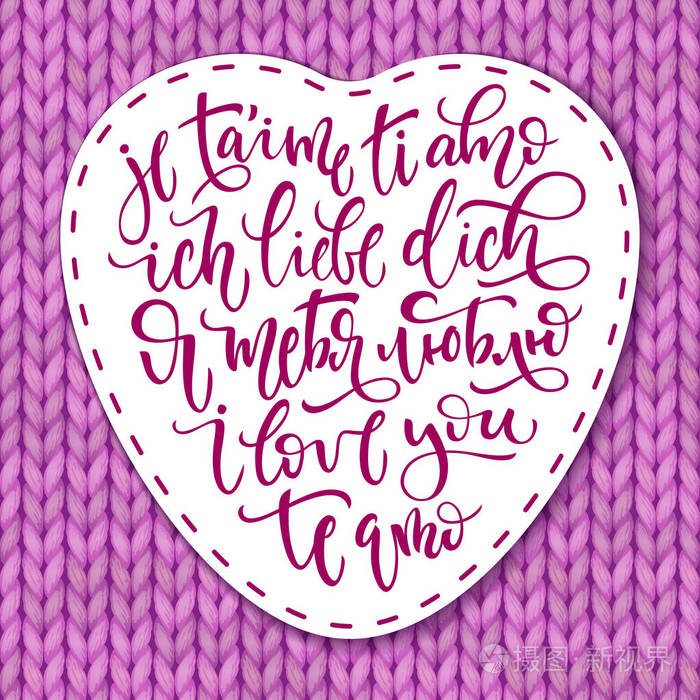 je t'aime ti amo
ich liebe dich
Я тебя люблю
i love you
te amo
摄图·新视界